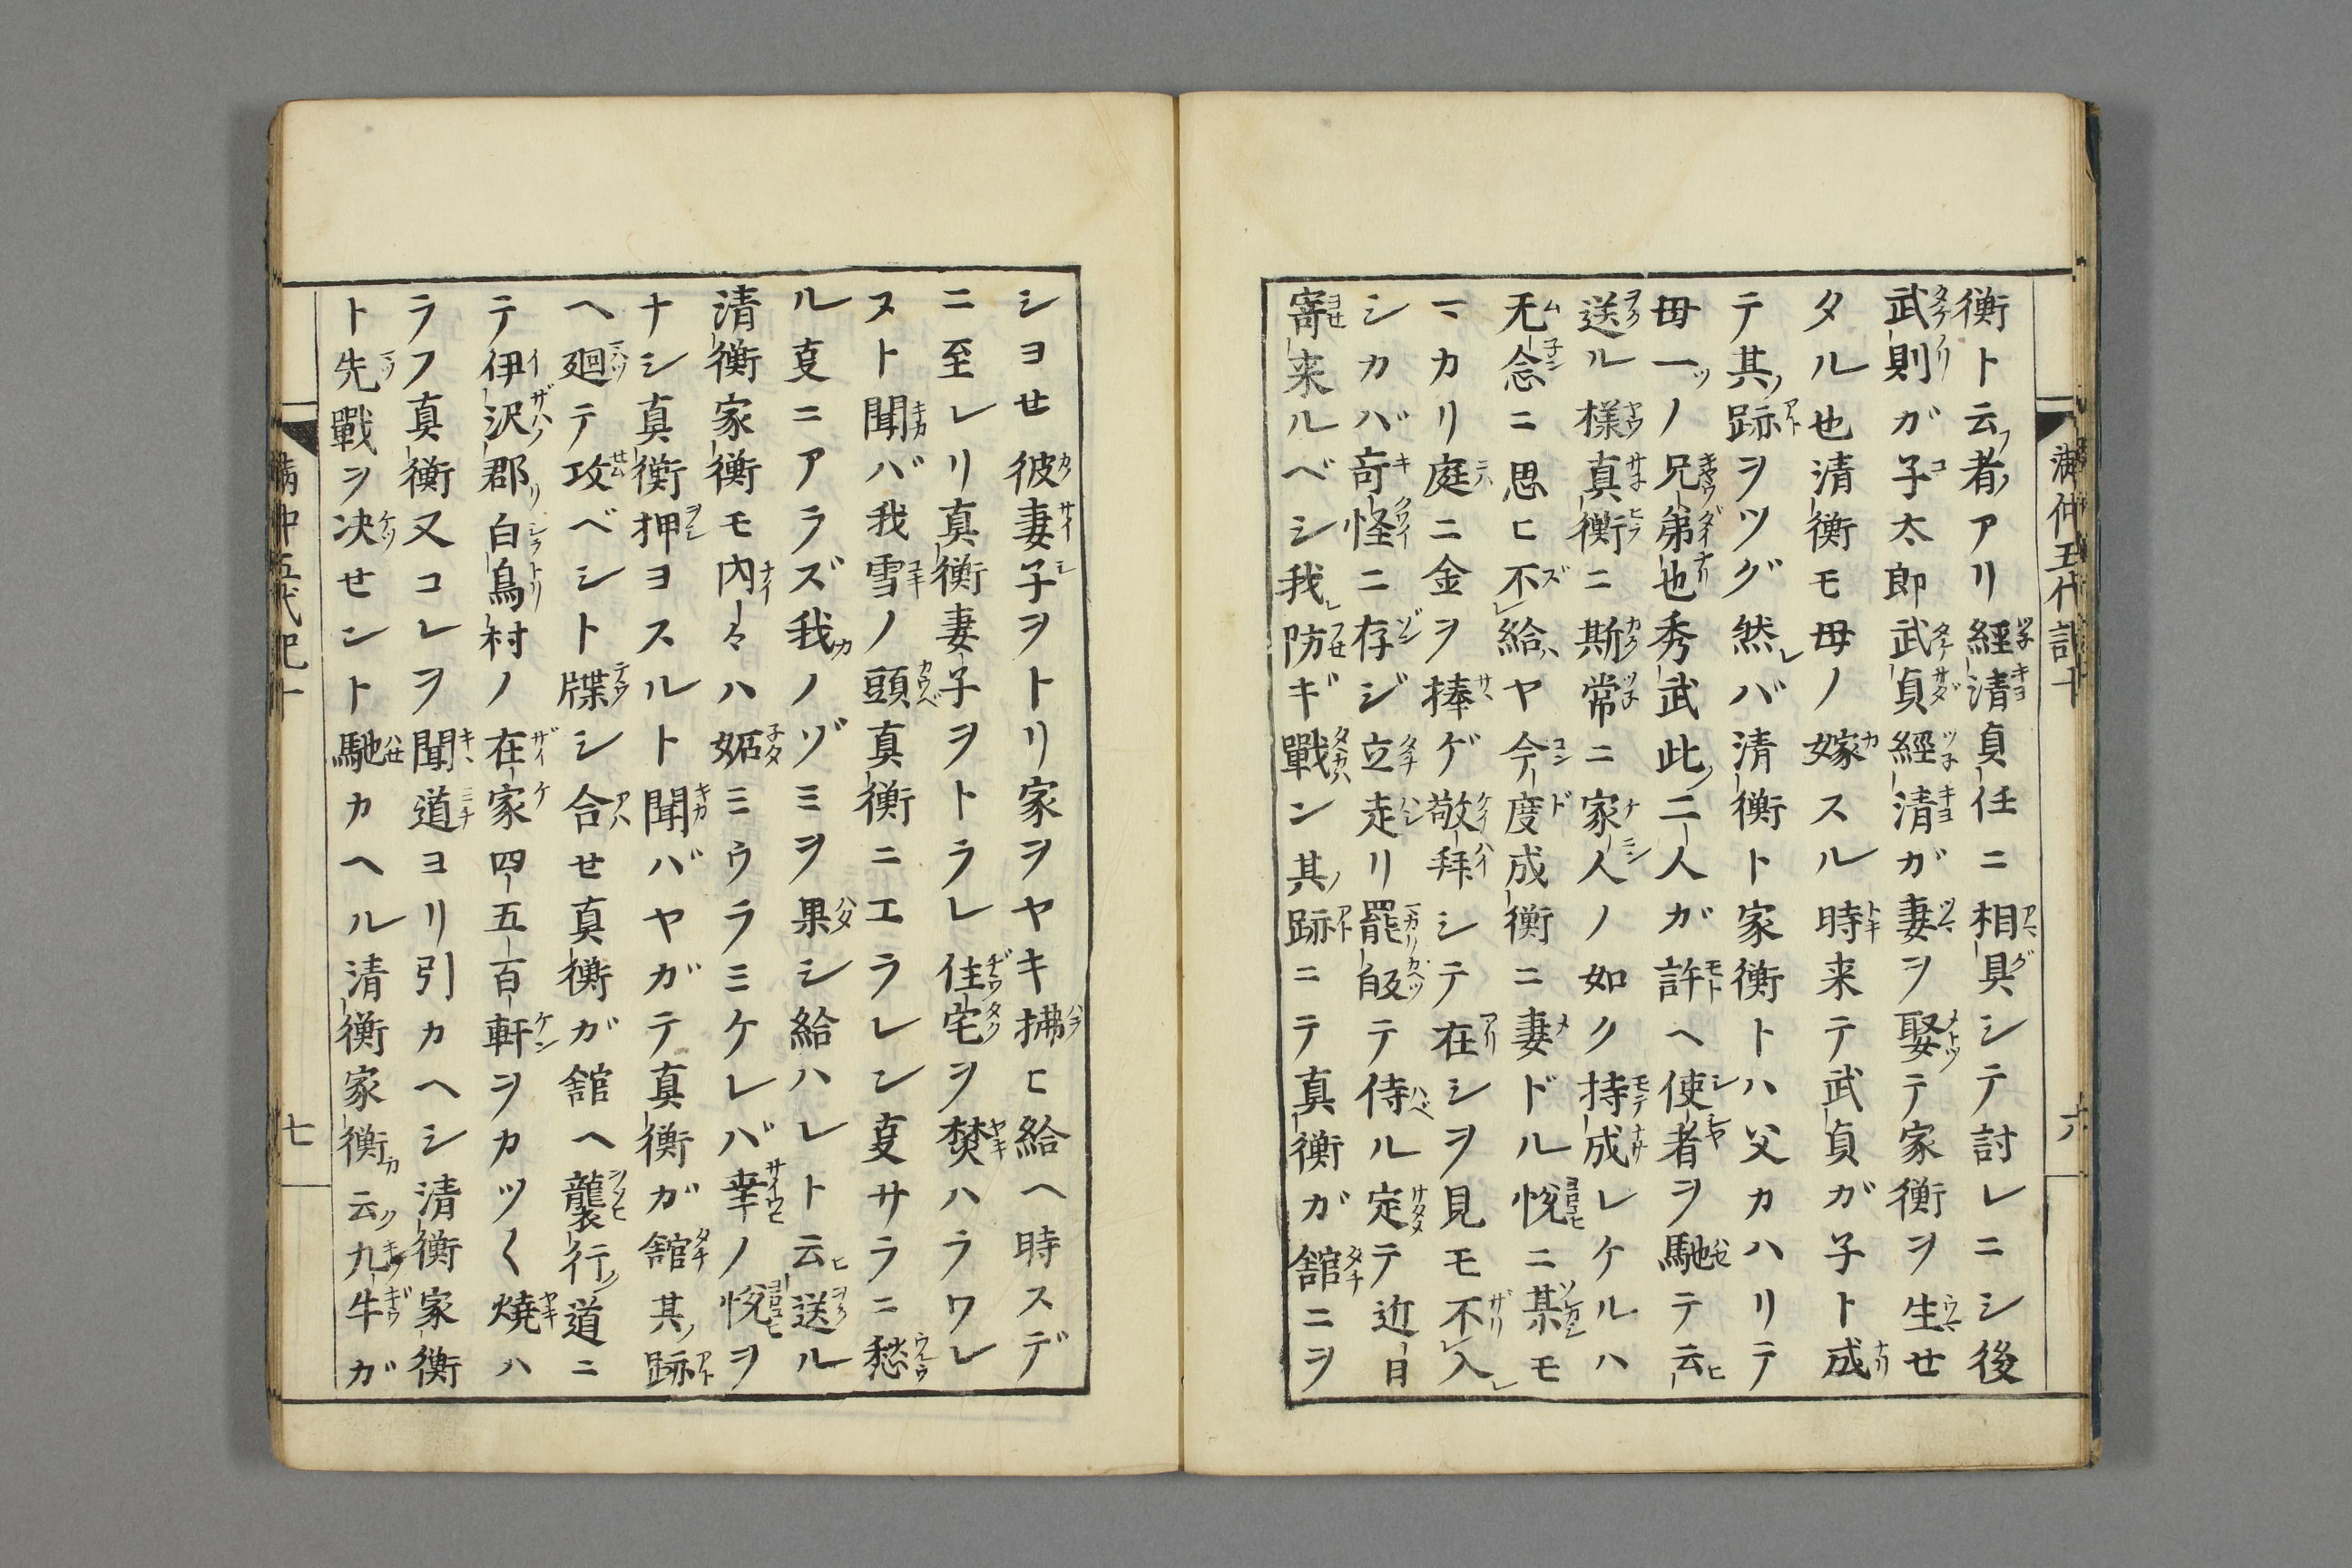 衡ト云者アリ經清貞任ニ相具シテ討レニシ後
武則ガ子太郎武貞經清ガ妻ヲ娶テ家衡ヲ生せ
タル也清衡モ母ノ嫁スル時来テ武貞ガ子ト成
テ其跡ヲツグ然バ清衡ト家衡トハ父カハリテ
母一ノ兄弟也秀武此二人ガ許ヘ使者ヲ馳テ云
送ル様真衡ニ斯常ニ家人ノ如ク持成レケルハ
无念ニ思ヒ不給ヤ今度成衡ニ妻ドル悦ニ某モ
マカリ庭ニ金ヲ捧ゲ敬拜シテ在シヲ見モ不入
シカバ竒怪ニ存ジ立走リ罷皈テ侍ル定テ近日
寄来ルベシ我防ギ戰ン其跡ニテ真衡ガ舘ニヲ
満仲五代記十
六
シヨせ彼妻子ヲトリ家ヲヤキ拂ヒ給ヘ時スデ
ニ至レリ真衡妻子ヲトラレ住宅ヲ焚ハラワレ
ヌト聞バ我雪ノ頭真衡ニエラレン㕝サラニ愁
ル㕝ニアラズ我ノゾミヲ果シ給ハレト云送ル
清衡家衡モ内々ハ妬ミウラミケレバ幸ノ悦ヲ
ナシ真衡押ヨスルト聞バヤガテ真衡ガ舘其跡
ヘ廻テ攻ベシト牒シ合せ真衡ガ舘ヘ襲行道ニ
テ伊沢郡白鳥村ノ在家四五百軒ヲカツ〱燒ハ
ラフ真衡又コレヲ聞道ヨリ引カヘシ清衡家衡
ト先戰ヲ决せント馳カヘル清衡家衡云九牛ガ
満仲五代記十
七